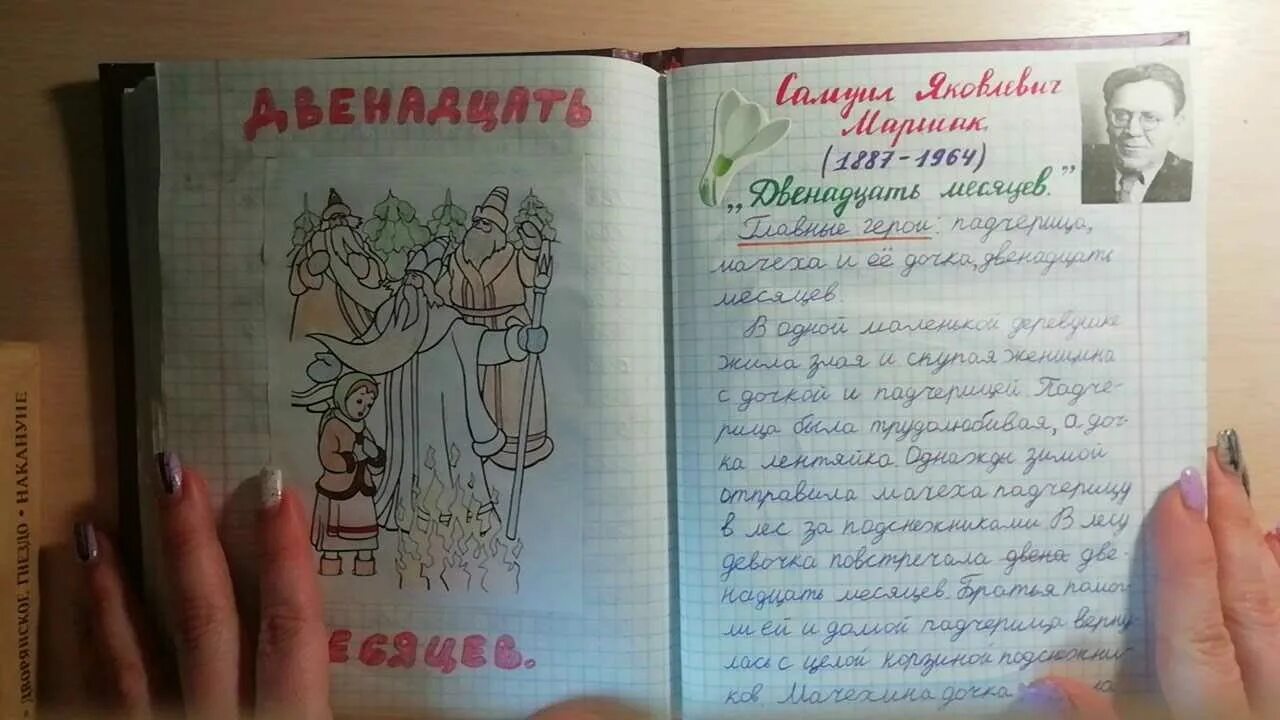 ДВЕНАДЦАТЬ
ЕСЯЦЕВ.
Самуил Яковлевич
Маршак.
(1887-1964)
„Двенадцать месяцев."
Главные герои: падчерица,
мачеха и её дочка, двенадцать
месяцев.
В одной маленькой деревушке
жила злая и скупая женщина
с дочкой и падчерицей. Падче-
рица была трудолюбивая, а доч-
ка лентяйка. Однажды зимой
отправила мачеха падчерицу
в лес за подснежниками. В лесу
девочка повстречала двена две-
надцать месяцев. Братья помог-
ли ей и домой падчерица верну-
лась с целой корзиной подснежни-
ков. Мачехина дочка
ДВОРЯНСКОЕ ГНЕЗДО • НАКАНУНЕ